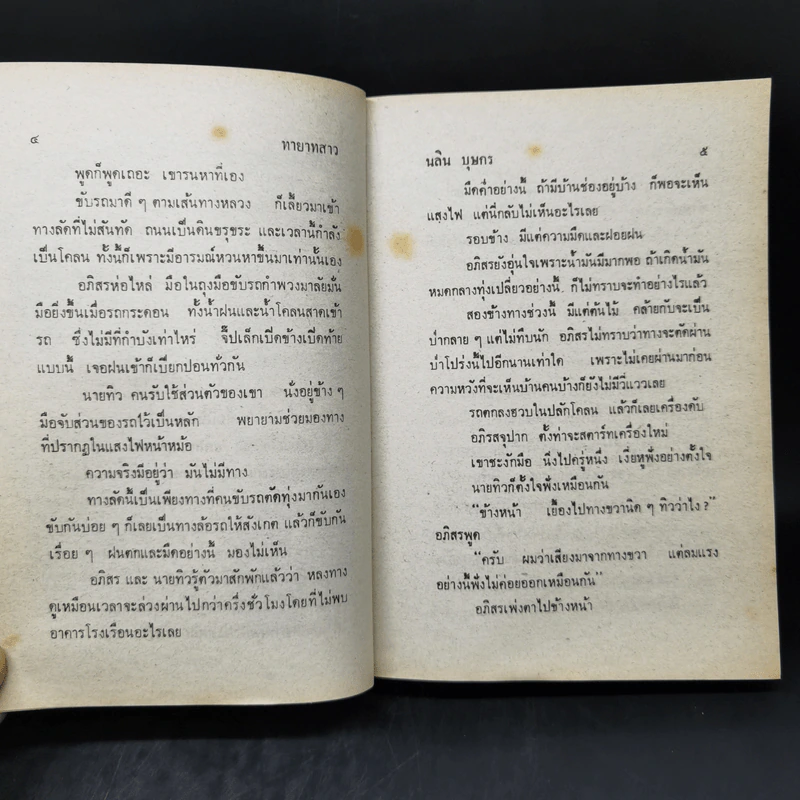 ๔ ทายาทสาว
พูดก็พูดเถอะ เขารนหาที่เอง
ขับรถมาดี ๆ ตามเส้นทางหลวง ก็เลี้ยวมาเข้า
ทางลัดที่ไม่สันทัด ถนนเป็นดินขรุขระ และเวลานี้กำลัง
เป็นโคลน ทั้งนี้ก็เพราะมีอารมณ์หวนหาขึ้นมาเท่านั้นเอง
อภิสรห่อไหล่ มือในถุงมือขับรถกำพวงมาลัยมั่น
มือยิ่งขึ้นเมื่อรถกระดอน ทั้งน้ำฝนและน้ำโคลนสาดเข้า
รถ ซึ่งไม่มีที่กำบังเท่าไหร่ จี๊ปเล็กเปิดข้างเปิดท้าย
แบบนี้ เจอฝนเข้าก็เปียกปอนทั่วกัน
นายทิว คนรับใช้ส่วนตัวของเขา นั่งอยู่ข้าง ๆ
มือจับส่วนของรถไว้เป็นหลัก พยายามช่วยมองทาง
ที่ปรากฏในแสงไฟหน้าหม้อ
ความจริงมีอยู่ว่า มันไม่มีทาง
ทางลัดนี้เป็นเพียงทางที่คนขับรถตัดทุ่งมากันเอง
ขับกันบ่อย ๆ ก็เลยเป็นทางล้อรถให้สังเกต แล้วก็ขับกัน
เรื่อย ๆ ฝนตกและมืดอย่างนี้ มองไม่เห็น
อภิสร และ นายทิวรู้ตัวมาสักพักแล้วว่า หลงทาง
ดูเหมือนเวลาจะล่วงผ่านไปกว่าครึ่งชั่วโมงโดยที่ไม่พบ
อาคารโรงเรือนอะไรเลย
นลิน บุษกร ๕
มืดค่ำอย่างนี้ ถ้ามีบ้านช่องอยู่บ้าง ก็พอจะเห็น
แสงไฟ แต่นี่กลับไม่เห็นอะไรเลย
รอบข้าง มีแต่ความมืดและฝอยฝน
อภิสรยังอุ่นใจเพราะน้ำมันมีมากพอ ถ้าเกิดน้ำมัน
หมดกลางทุ่งเปลี่ยวอย่างนี้ ก็ไม่ทราบจะทำอย่างไรแล้ว
สองข้างทางช่วงนี้ มีแต่ต้นไม้ คล้ายกับจะเป็น
ป่ากลาย ๆ แต่ไม่ทึบนัก อภิสรไม่ทราบว่าทางจะตัดผ่าน
ป่าโปร่งนี้ไปอีกนานเท่าใด เพราะไม่เคยผ่านมาก่อน
ความหวังที่จะเห็นบ้านคนบ้างก็ยังไม่มีวี่แววเลย
รถตกลงฮวบในปลักโคลน แล้วก็เลยเครื่องดับ
อภิสรจุปาก ตั้งท่าจะสตาร์ทเครื่องใหม่
เขาชะงักมือ นิ่งไปครู่หนึ่ง เงี่ยหูฟังอย่างตั้งใจ
นายทิวก็ตั้งใจฟังเหมือนกัน
“ข้างหน้า เยื้องไปทางขวานิด ๆ ทิวว่าไง?”
อภิสรพูด
“ครับ ผมว่าเสียงมาจากทางขวา แต่ลมแรง
อย่างนี้ฟังไม่ค่อยออกเหมือนกัน”
อภิสรเพ่งตาไปข้างหน้า